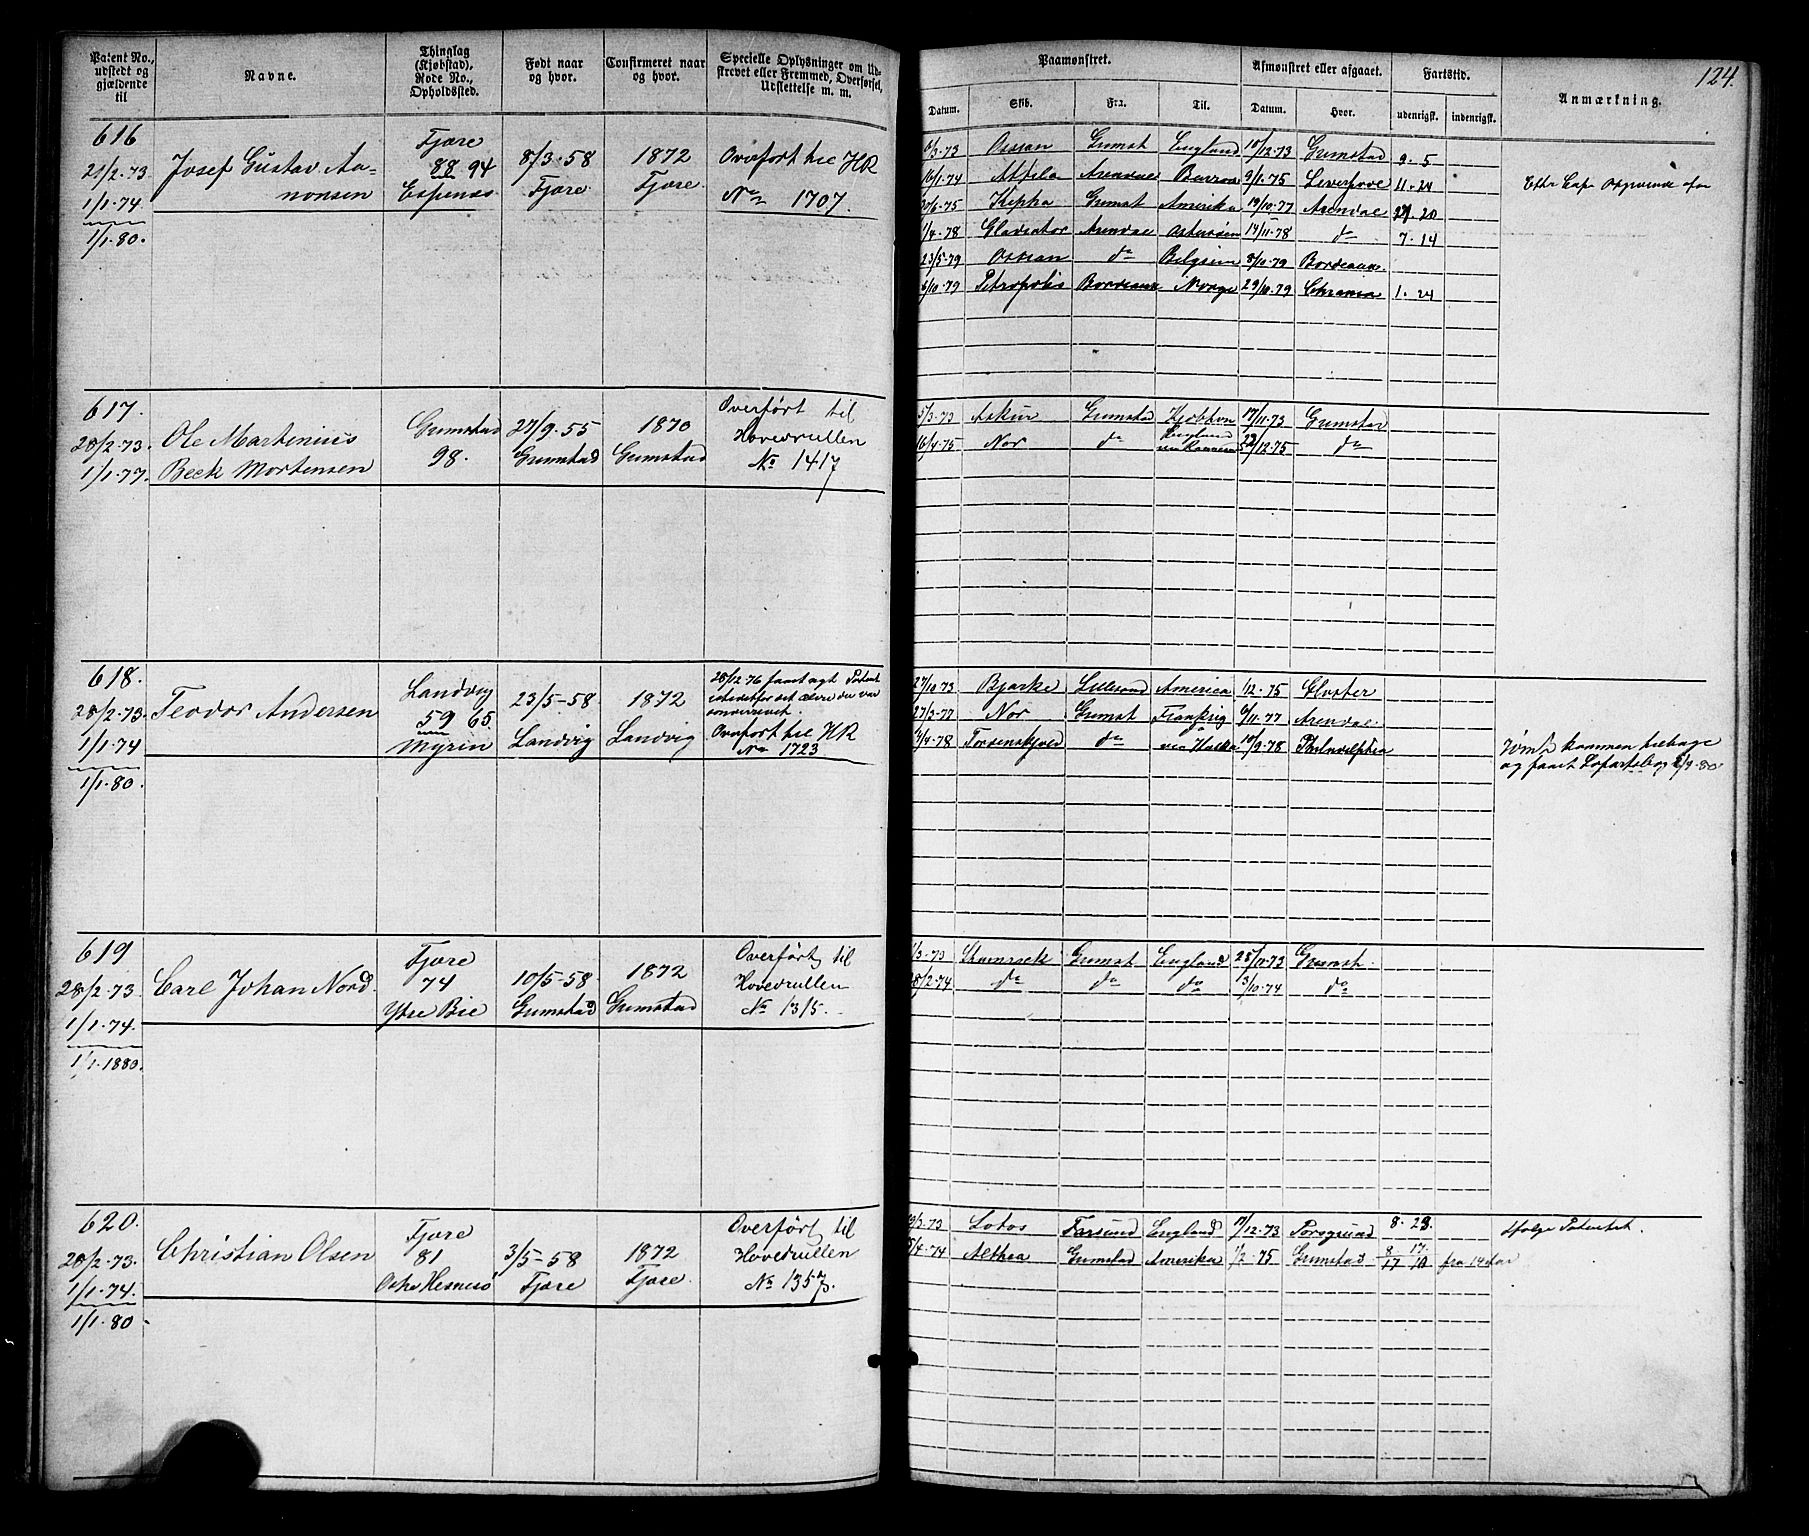 Patent No., udstedt og gjældende til
Navne.
Thinglag (Kjøbstad), Rode No., Opholdssted.
Født naar og hvor.
Confirmeret naar og hvor.
Specielle Oplysninger om Udskrevet eller Fremmed, Overførsel, Udslettelse m. m.
Paamønstret.
Datum.
Skib.
Fra.
Til.
Afmønstret eller afgaaet.
Datum.
Hvor.
Fartstid.
udenrigsk.
indenrigsk.
Anmærkning.
124.
616
21/2.73
1/1.74
1/1.80.
Josef Gustav Aa-
nonsen
Fjære
88 94
Espenæs
8/3-58
Fjære
1872
Fjære
Overført til HR
No 1707.
6/3.73 Ossian Grmst England 18/12.73 Grimstad 9.5
16/1.74 Attila Arendal 9/1.75 Liverpool 11.24
30/6.75 Kepha Grmst Amerika 19/10.77 Arendal 27.20
1/4.78 Gladiator Arendal Østersøen 14/11.78 do 7.14
23/5.79 Ossian do Belgien 8/10.79 Bordeaux.
6/10.79 Petropolis Bordeaux Norge 29/10.79 Chrania 1.24
617.
28/2.73.
1/1.77.
Ole Martinius
Beck Mortensen
Grimstad
98.
27/9.55
Grimstad
1870
Grimstad
Overført til
Hovedrullen
No 1417
5/3.73 Askur Grimstad Kjøbhvn 17/11.73 Grimstad
16/4.75 Nor do England 22/12.75 do
618.
28/2.73.
1/1.74
1/1.80.
Teodor Andersen
Landvig
59 65
Myrin
23/5-58
Landvig
1872
Landvig
28/2.76 faaet nyt Patent
istedetfor det ældre der var
Overført til HR
No 1723
27/10.73 Bjarke Lillesand America /12.75 Gloster
27/3.77 Nor Grmst Frankrig 6/11.77 Arendal.
/4.78 Tordenskjold do 10/9.78 Philadelphia
kommen tilbage
og faaet 2/9.80.
619
28/2.73.
1/1.74.
1/1.1880.
Carl Johan Nord
Fjære
74
Ytre Bie
10/5-58
Grimstad
1872
Grimstad
Overført til
Hovedrullen
No 1315.
/3.73 Grmst England 25/11.73 Grmst.
28/2.74 do do do 3/10.74 do
620.
28/2.73.
1/1.74.
1/1.80-
Christian Olsen
Fjære
81
Østre Hesnesø
3/5-58
Fjære
1872
Fjære
Overført til
Hovedrullen
No 1357.
/3.73 Lotos Farsund England 17/12.73 Porsgrund 8.23. Ifølge Patentet.
5/4.74 Althea Grimstad Amerika 1/2.75 Grimstad 8/17 17/10 fra 14